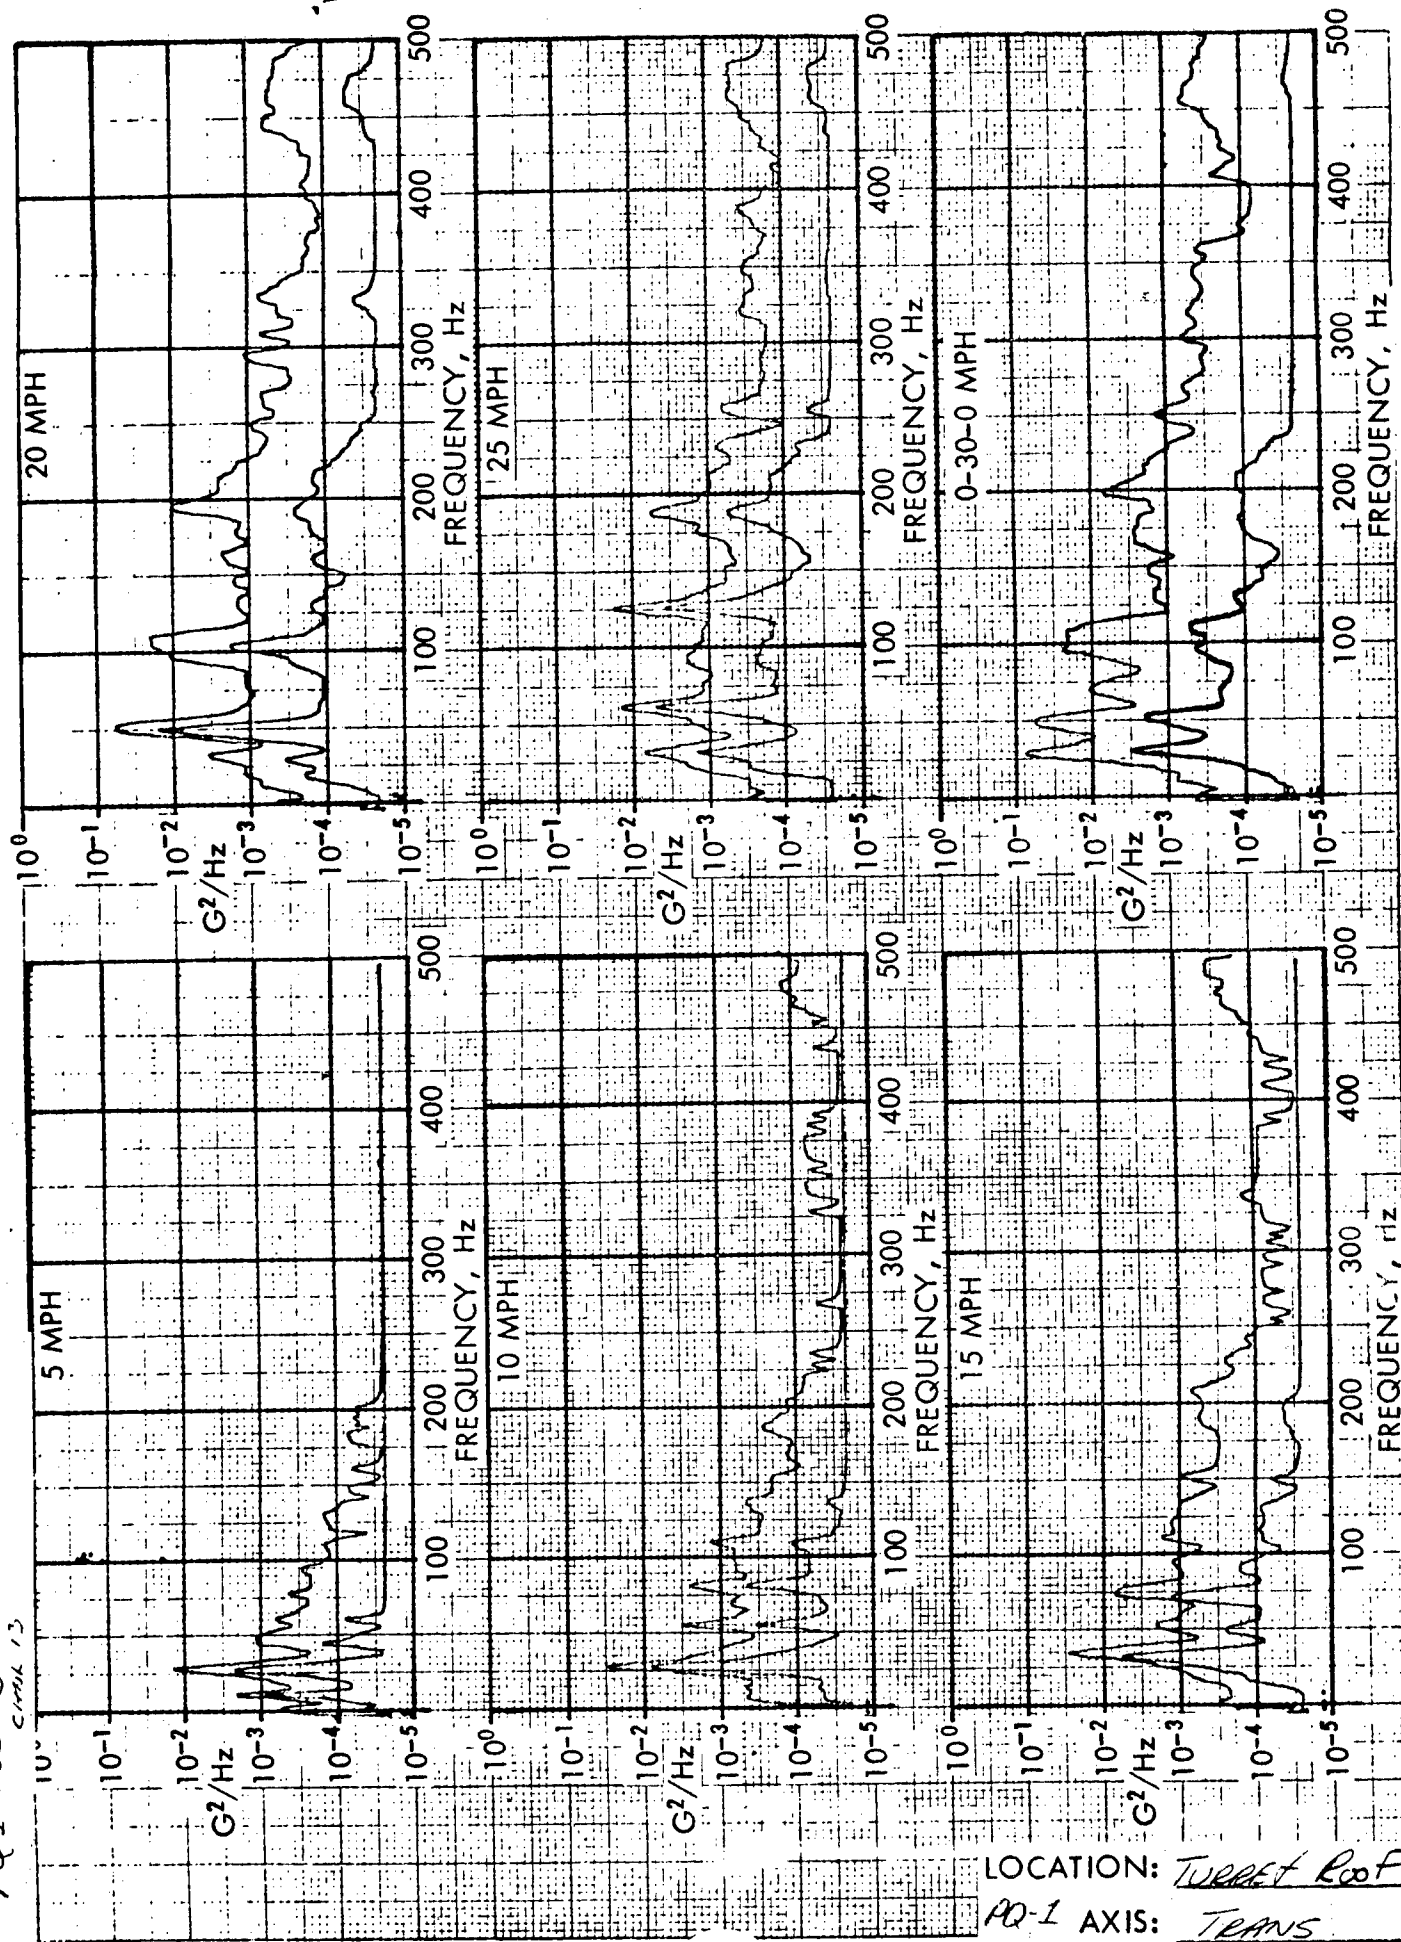 5 MPH
10⁻¹
10⁻²
10⁻³
10⁻⁴
10⁻⁵
G²/Hz
100
200
300
400
500
FREQUENCY, Hz
10 MPH
10⁰
10⁻¹
10⁻²
10⁻³
10⁻⁴
10⁻⁵
G²/Hz
100
200
300
400
500
FREQUENCY, Hz
15 MPH
10⁰
10⁻¹
10⁻²
10⁻³
10⁻⁴
10⁻⁵
G²/Hz
100
200
300
400
500
FREQUENCY, Hz
20 MPH
10⁰
10⁻¹
10⁻²
10⁻³
10⁻⁴
10⁻⁵
G²/Hz
100
200
300
400
500
FREQUENCY, Hz
25 MPH
10⁰
10⁻¹
10⁻²
10⁻³
10⁻⁴
10⁻⁵
G²/Hz
100
200
300
400
500
FREQUENCY, Hz
0-30-0 MPH
10⁰
10⁻¹
10⁻²
10⁻³
10⁻⁴
10⁻⁵
G²/Hz
100
200
300
400
500
FREQUENCY, Hz
LOCATION: TURRET ROOF
PQ-1 AXIS: TRANS